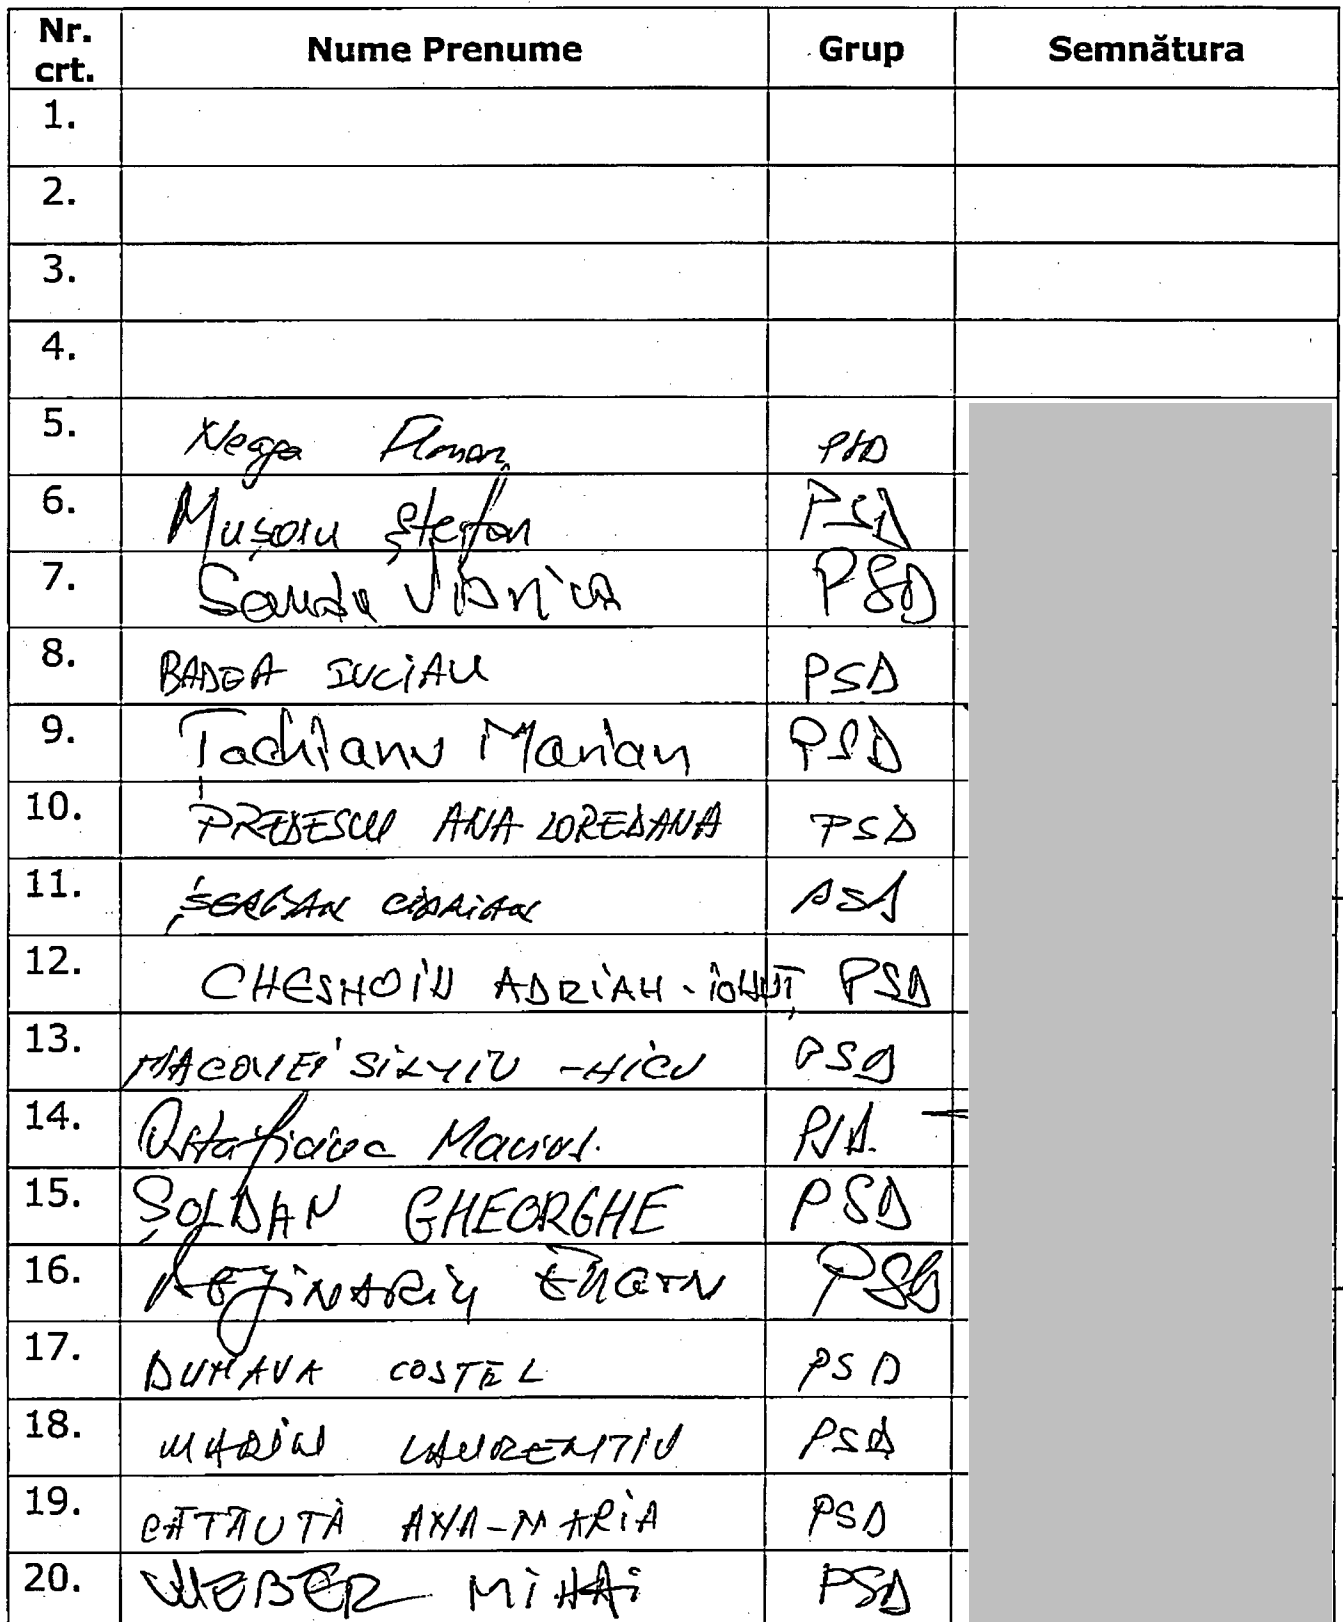 Nr. crt. Nume Prenume Grup Semnătura
1.
2.
3.
4.
5. PSD
6. Mușoiu Ștefan PSD
7. Sandu Viorica PSD
8. BADEA LUCIAN PSD
9. Tachianu Marian PSD
10. PREDESCU ANA LOREDANA PSD
11. ȘERBAN CIPRIAN PSD
12. CHESNOIU ADRIAN-IONUȚ PSD
13. MACOVEI SILVIU-NICU PSD
14. Ostaficiuc Marius. PSD.
15. ȘOLDAN GHEORGHE PSD
16. PSD
17. DUNAVA COSTEL PSD
18. MARIN LAURENTIU PSD
19. CĂTĂUTĂ ANA-MARIA PSD
20. WEBER MIHAI PSD